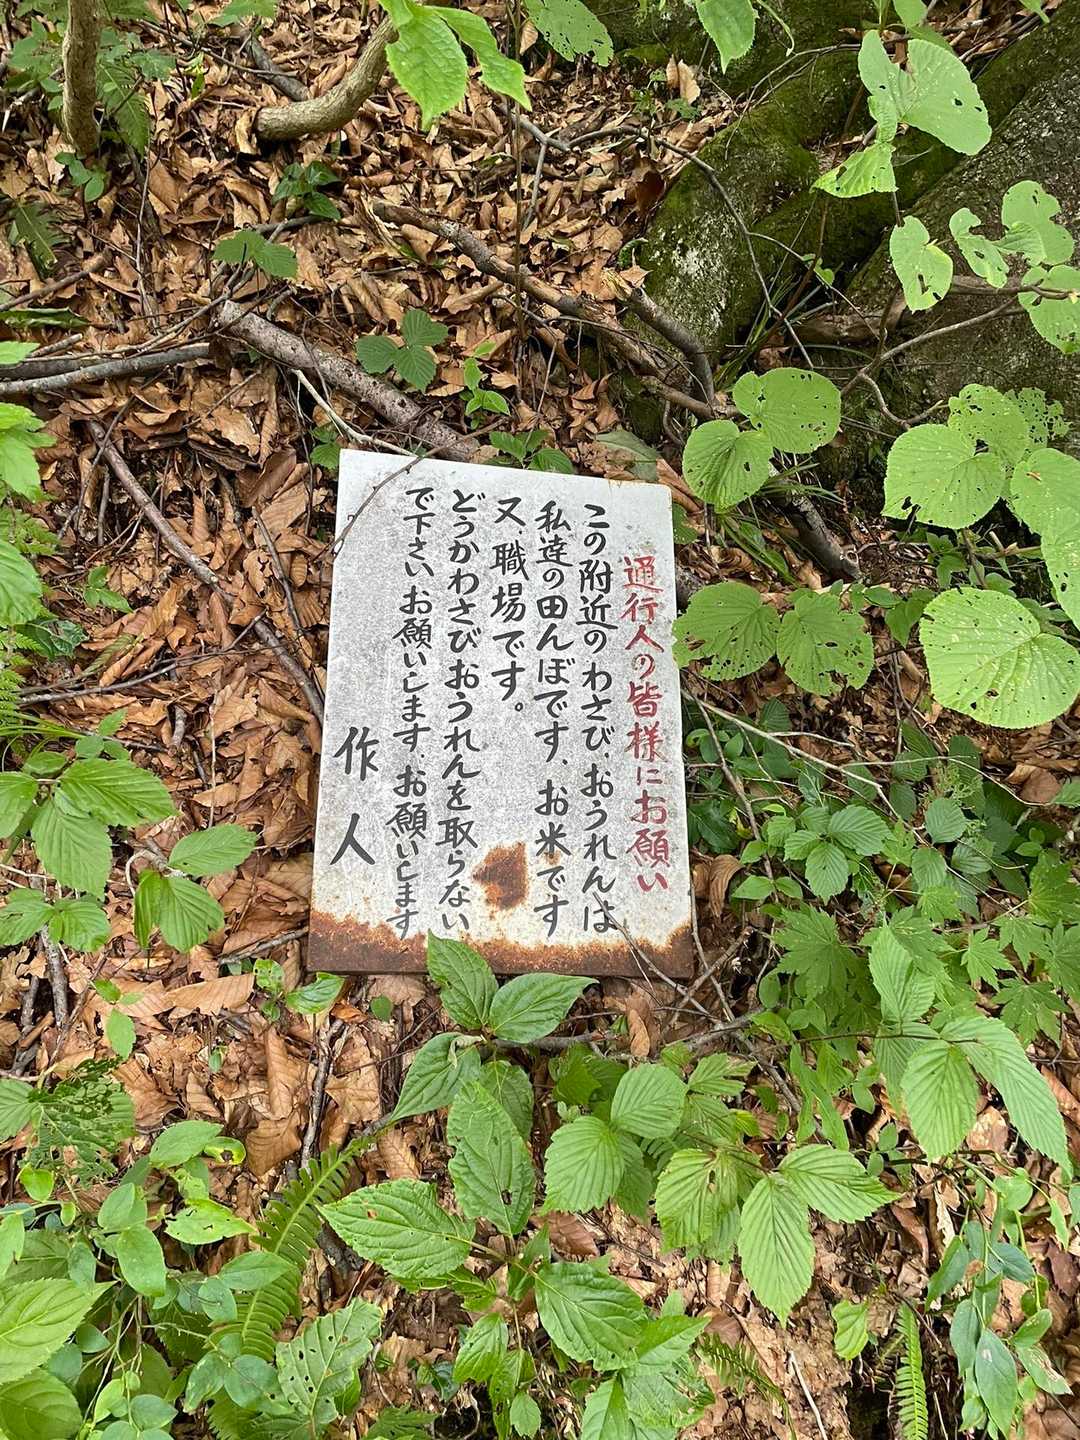 通行人の皆様にお願い
この附近のわさび、おうれんは
私達の田んぼです、お米です
又、職場です。
どうかわさびおうれんを取らない
で下さいお願いします、お願いします
作人